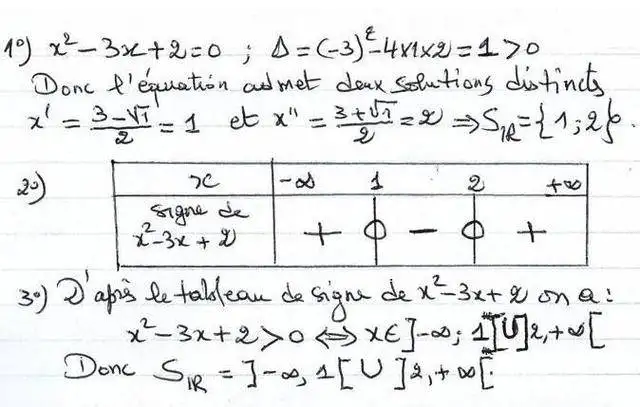 1°) x² – 3x + 2 = 0 ; Δ = (–3)² – 4×1×2 = 1 > 0
Donc l'équation admet deux solutions distincts
x' = (3 – √1)/2 = 1 et x'' = (3 + √1)/2 = 2 ⇒ S_IR = {1 ; 2}.
2°)
x –∞ 1 2 +∞
signe de
x² – 3x + 2 + 0 – 0 +
3°) D'après le tableau de signe de x² – 3x + 2 on a :
x² – 3x + 2 > 0 ⇔ x ∈ ]–∞ ; 1[ U ]2, +∞[
Donc S_IR = ]–∞, 1[ U ]2, +∞[.